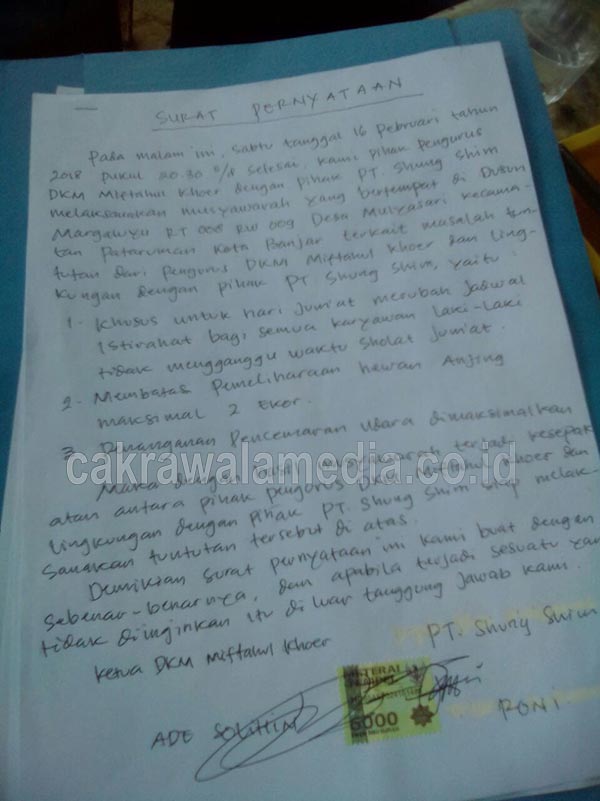 SURAT PERNYATAAN
Pada malam ini, sabtu tanggal 16 Pebruari tahun
2018 pukul 20.30 s/d selesai, kami pihak pengurus
DKM Miftahul Khoer dengan pihak PT. Shung Shim
melaksanakan musyawarah yang bertempat di Dusun
Margawyu RT 008 RW 009 Desa Mulyasari kecama-
tan Pataruman Kota Banjar terkait masalah tun-
tutan dari pengurus DKM Miftahul Khoer dan Ling-
kungan dengan pihak PT Shung Shim, yaitu :
1. Khusus untuk hari jum'at merubah jadwal
Istirahat bagi semua karyawan laki-laki
tidak mengganggu waktu sholat jum'at.
2. Membatas Pemeliharaan hewan Anjing
maksimal 2 Ekor.
3. Penanganan Pencemaran Udara dimaksimalkan
Maka dengan musyawarah terjadi kesepak
atan antara pihak pengurus DKM Miftahul Khoer dan
Lingkungan dengan pihak PT. Shung Shim siap melak-
sanakan tuntutan tersebut di atas.
Demikian surat pernyataan ini kami buat dengan
sebenar-benarnya, dan apabila terjadi sesuatu yan
tidak diinginkan itu di luar tanggung jawab kami.
Ketua DKM Miftahul Khoer
PT. Shung Shim
METERAI
TEMPEL
6000
ENAM RIBU RUPIAH
ADE SOLIHIN
RONI
cakrawalamedia.co.id